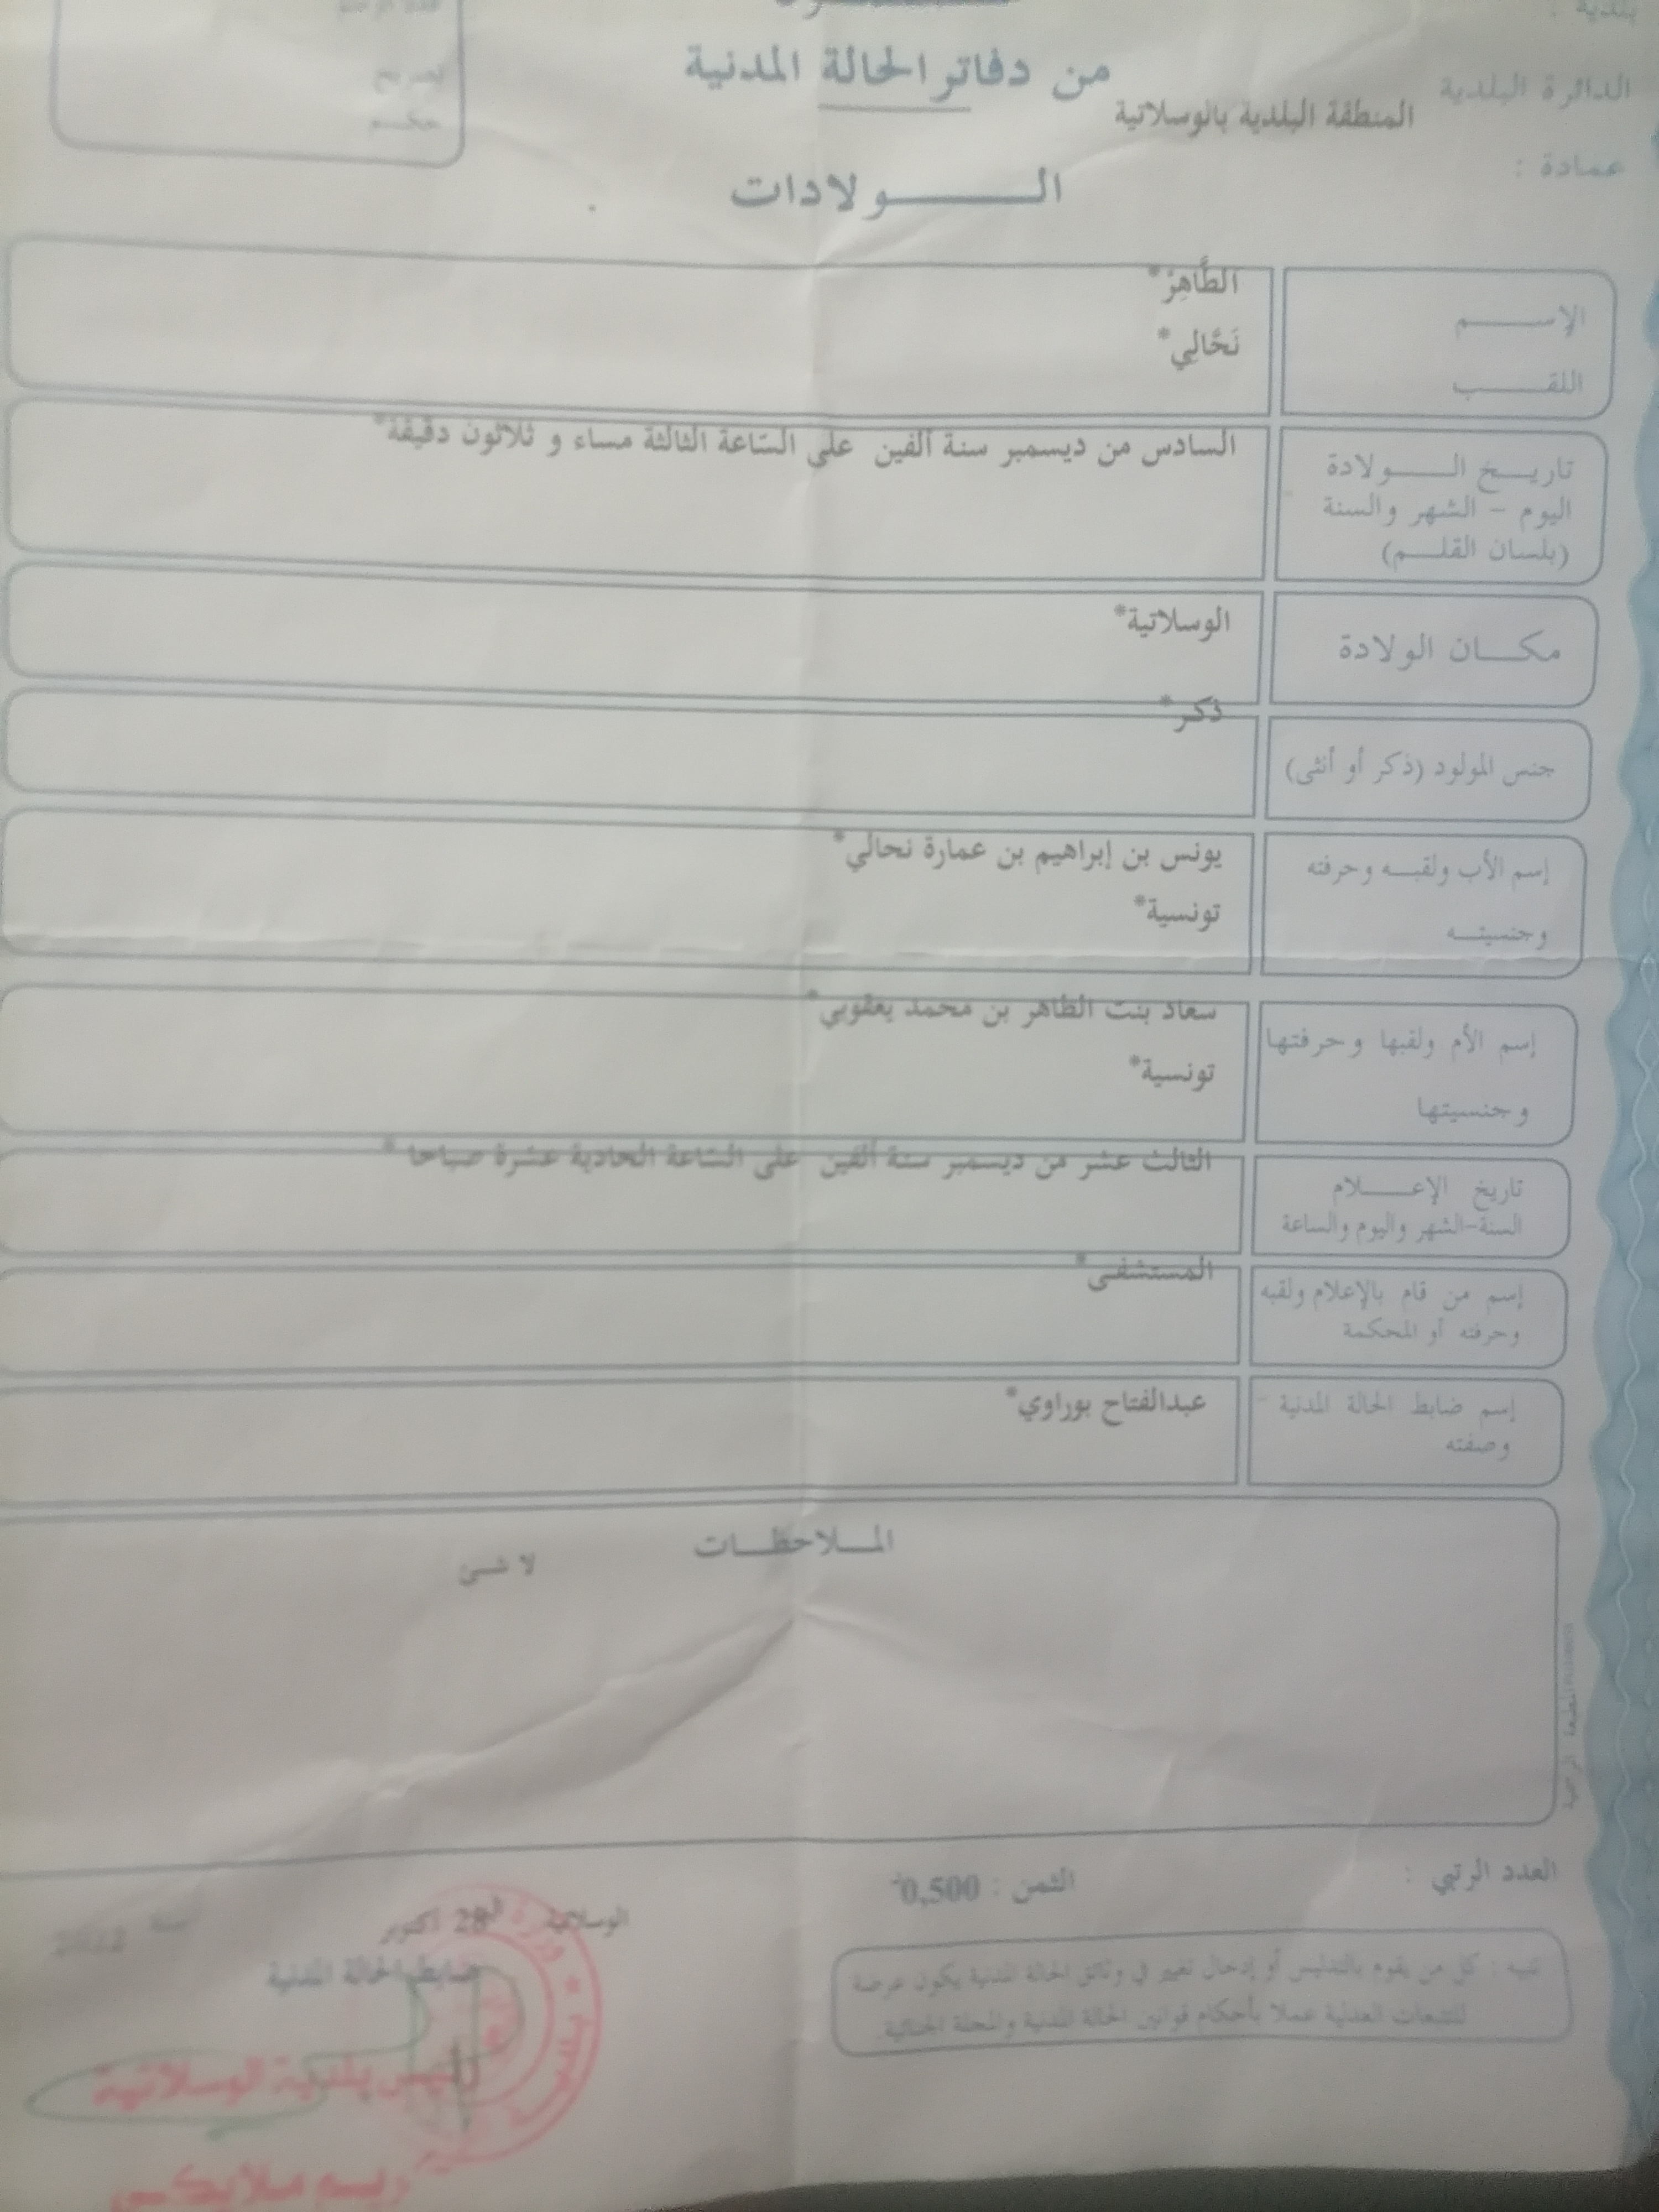 بلدية :
من دفاتر الحالة المدنية
الدائرة البلدية
المنطقة البلدية بالوسلاتية
عمادة :
الــــولادات
الإســـم
الطَّاهِرْ*
اللقـــب
نَحَّالِي*
تاريـــخ الـــــولادة
اليوم - الشهر والسنة
(بلسان القلـــم)
السادس من ديسمبر سنة ألفين على السّاعة الثالثة مساء و ثلاثون دقيقة*
مكـــان الولادة
الوسلاتية*
جنس المولود (ذكر أو أنثى)
ذكر*
إسم الأب ولقبـــه وحرفته
وجنسيتـــه
يونس بن إبراهيم بن عمارة نحالي*
تونسية*
إسم الأم ولقبها وحرفتها
وجنسيتها
سعاد بنت الطاهر بن محمد يعقوبي*
تونسية*
تاريخ الإعـــــلام
السنة-الشهر واليوم والساعة
الثالث عشر من ديسمبر سنة ألفين على السّاعة الحادية عشرة صباحا *
إسم من قام بالإعلام ولقبه
وحرفته أو المحكمة
المستشفى*
إسم ضابط الحالة المدنية -
وصفته
عبدالفتاح بوراوي*
المـــلاحظـــات
لا شئ
العدد الرتبي :
الثمن : 0,500
الوسلاتية 28 أكتوبر سنة 2022
ضابط الحالة المدنية
تنبيه : كل من يقوم بالتدليس أو إدخال تغيير في وثائق الحالة المدنية يكون عرضة
للتتبعات العدلية عملا بأحكام قوانين الحالة المدنية والمجلة الجنائية.
رئيس بلدية الوسلاتية